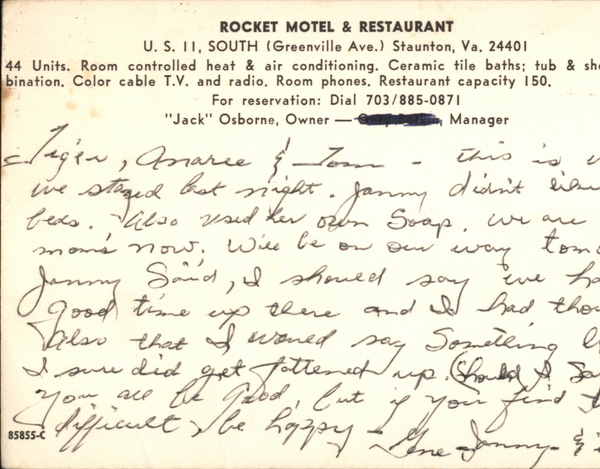 ROCKET MOTEL & RESTAURANT
U. S. 11, SOUTH (Greenville Ave.) Staunton, Va. 24401
44 Units. Room controlled heat & air conditioning. Ceramic tile baths; tub & sh
bination. Color cable T.V. and radio. Room phones. Restaurant capacity 150.
For reservation: Dial 703/885-0871
"Jack" Osborne, Owner — , Manager
& Tom - this is
we stayed last night. Janny didn't
beds. Also used her own Soap. we are
mom's now. Will be on our way tom
Janny Said, I should say we ha
good time up there and I had tho
Also that I would say Something
I sure did get fattened up. (Should I Sa
you all be good, but if you find
difficult, be happy -
Gene - Janny - &
85855-C